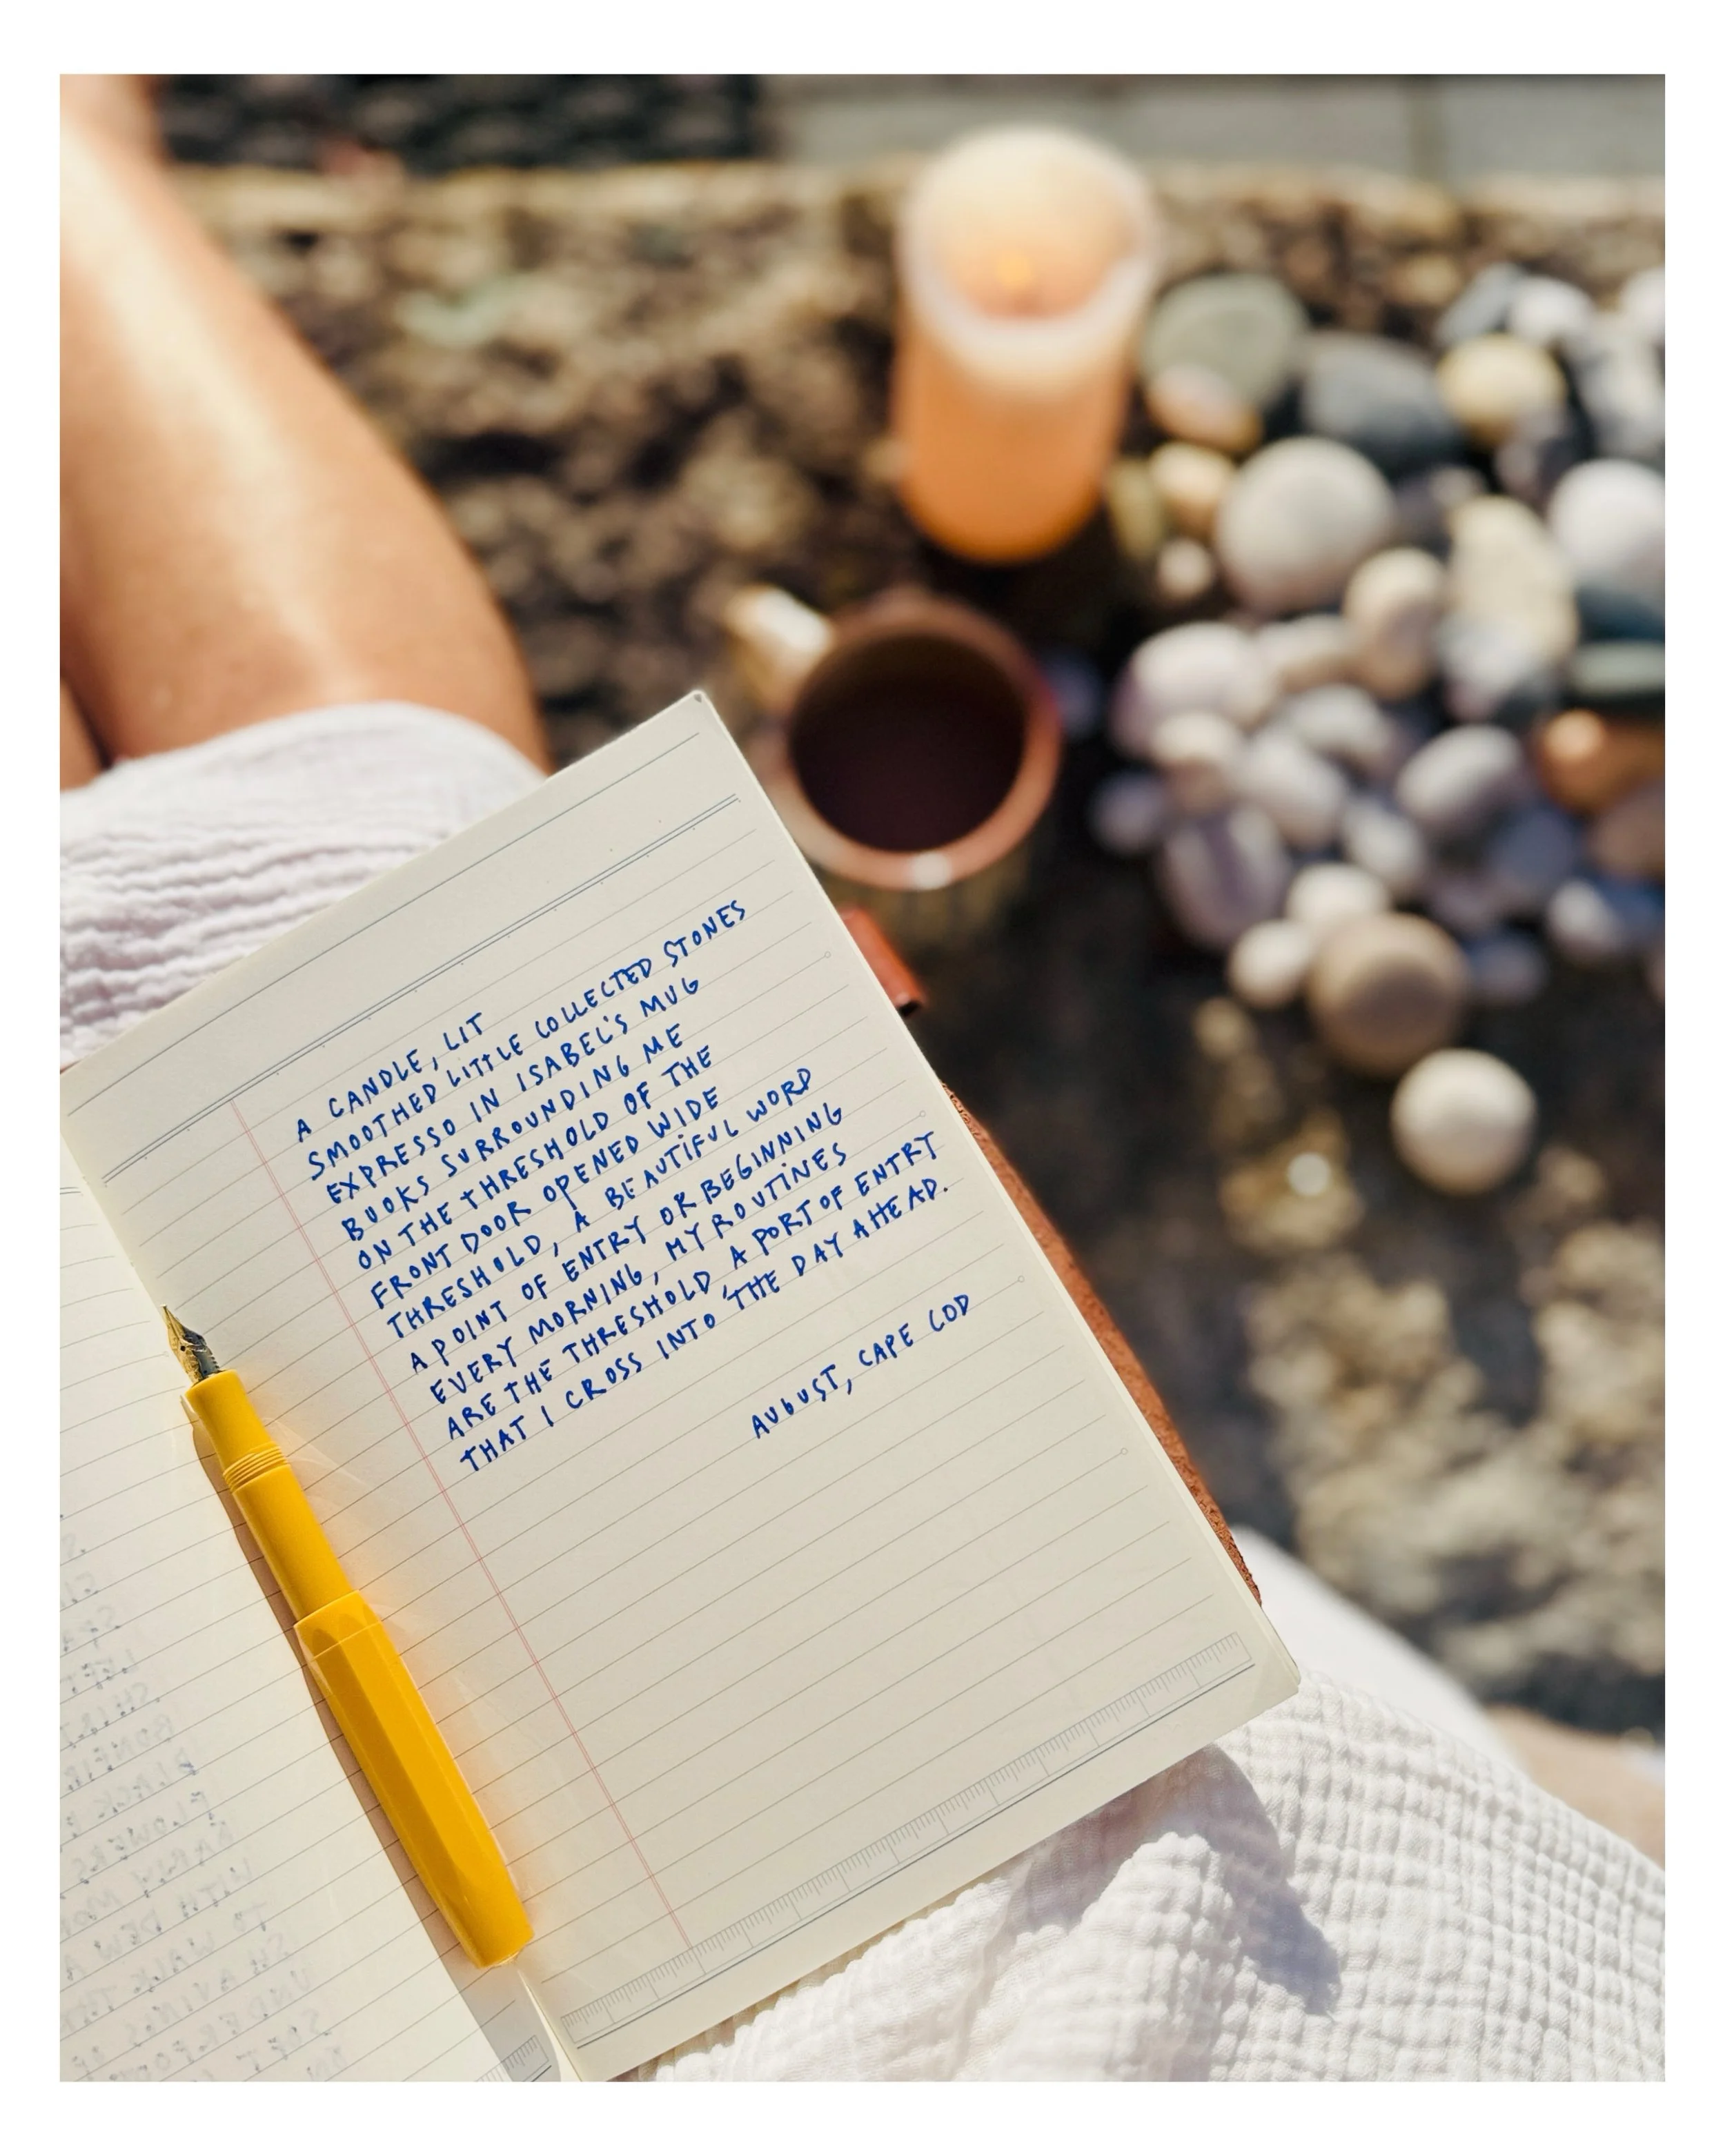 A CANDLE, LIT
SMOOTHED LITTLE COLLECTED STONES
EXPRESSO IN ISABEL'S MUG
BOOKS SURROUNDING ME
ON THE THRESHOLD OF THE
FRONT DOOR OPENED WIDE
THRESHOLD, A BEAUTIFUL WORD
A POINT OF ENTRY OR BEGINNING
EVERY MORNING, MY ROUTINES
ARE THE THRESHOLD, A PORT OF ENTRY
THAT I CROSS INTO THE DAY AHEAD.
AUGUST, CAPE COD